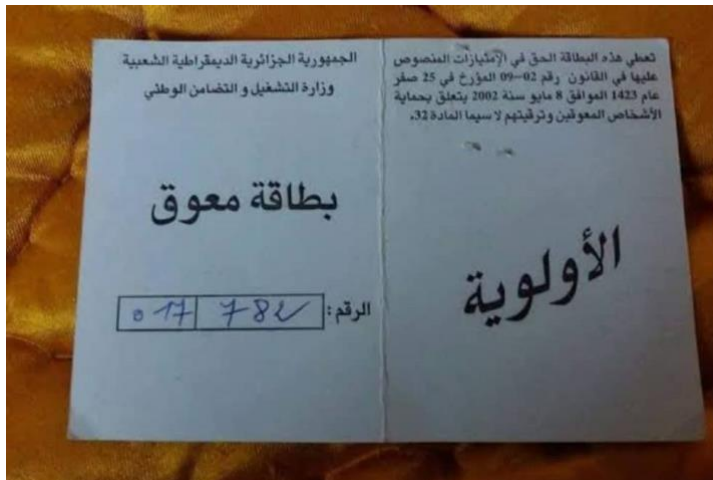 تعطي هذه البطاقة الحق في الإمتيازات المنصوص
عليها في القانون رقم 02-09 المؤرخ في 25 صفر
عام 1423 الموافق 8 مايو سنة 2002 يتعلق بحماية
الأشخاص المعوقين وترقيتهم لا سيما المادة 32.
الأولوية
الجمهورية الجزائرية الديمقراطية الشعبية
وزارة التشغيل و التضامن الوطني
بطاقة معوق
الرقم: 017 782